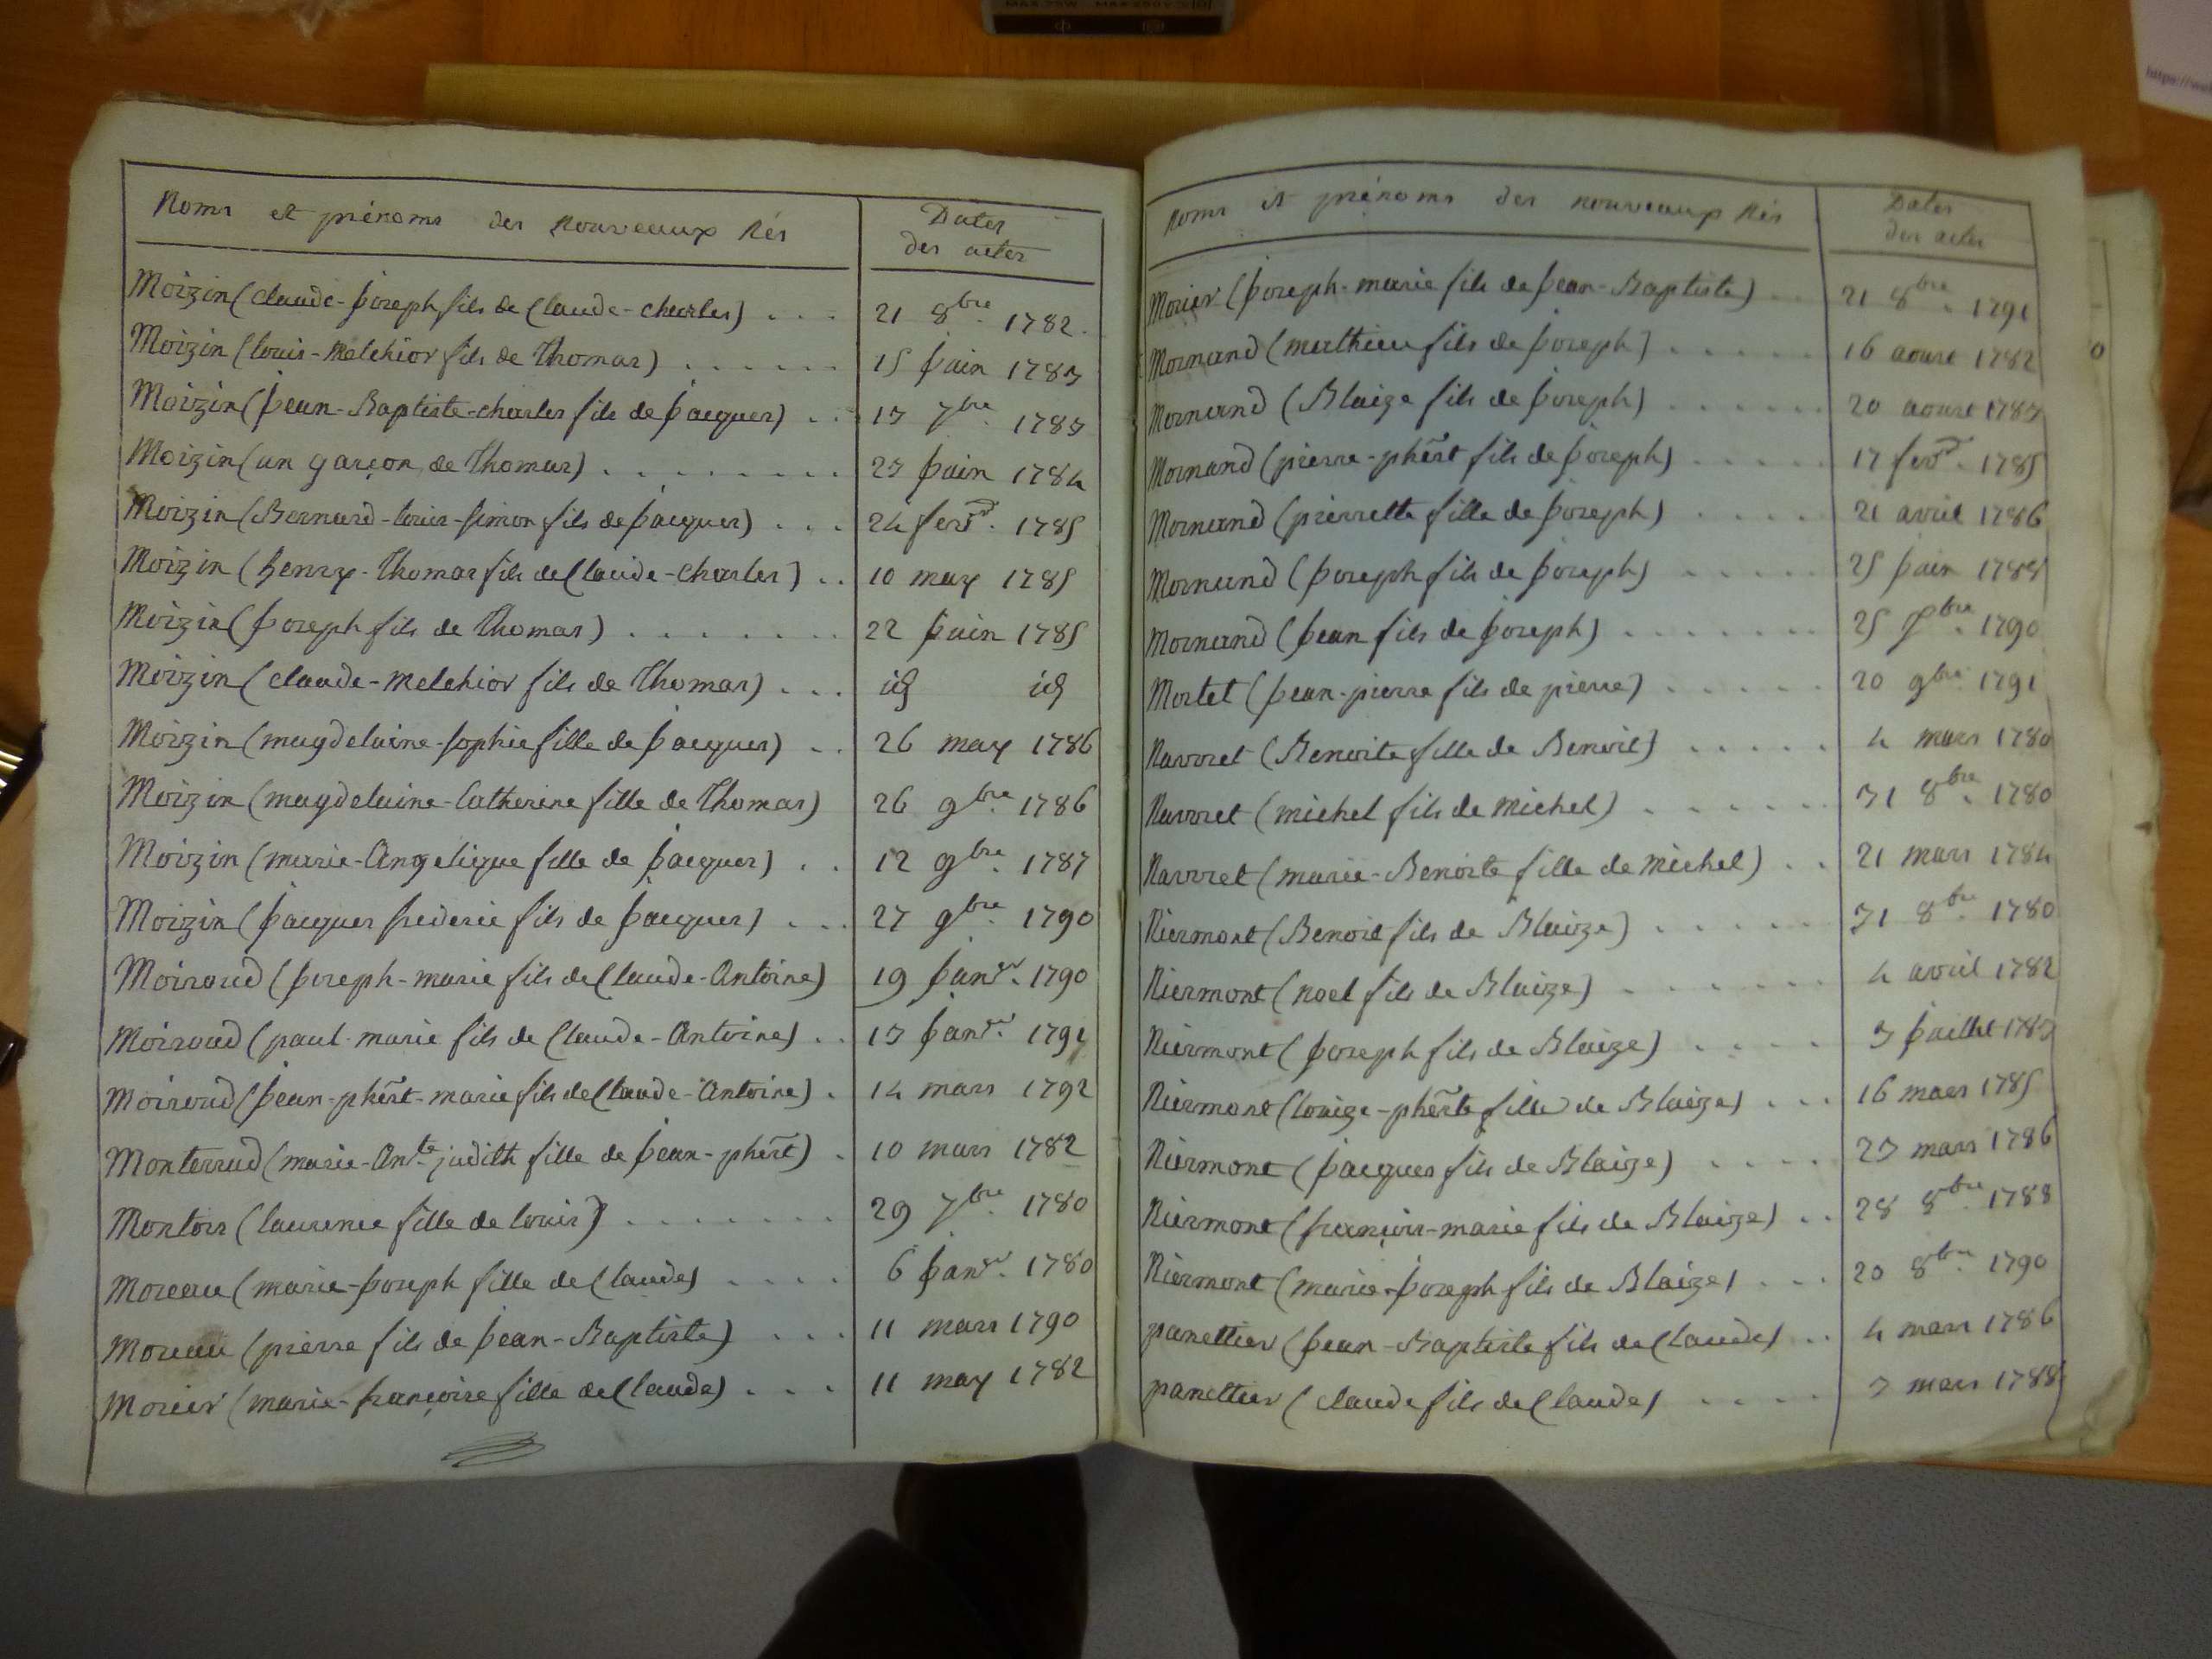 Noms et prénoms des nouveaux Nés
Dates
des actes
Moizin (claude-Joseph fils de Claude-charles) . . . 21 8bre. 1782.
Moizin (louis-Melchior fils de Thomas) . . . . . . 15 Juin 1783
Moizin (Jean-Baptiste-charles fils de Jacques) . . 13 7bre. 1783
Moizin (un garçon de Thomas) . . . . . . . . 23 Juin 1784
Moizin (Bernard-louis-simon fils de Jacques) . . . 24 fevr. 1785
Moizin (henry-Thomas fils de Claude-charles) . . 10 may 1785
Moizin (Joseph fils de Thomas) . . . . . . . 22 Juin 1785
Moizin (claude-Melchior fils de Thomas) . . . id id
Moizin (magdelaine-sophie fille de Jacques) . . 26 may 1786
Moizin (magdelaine-Catherine fille de Thomas) 26 9bre. 1786
Moizin (marie-Angelique fille de Jacques) . . 12 9bre. 1787
Moizin (Jacques frederic fils de Jacques) . . . 27 9bre. 1790
Moiroud (Joseph-marie fils de Claude-Antoine) 19 Janvr. 1790
Moiroud (paul-marie fils de Claude-Antoine) . . 13 Janvr. 1791
Moiroud (Jean-phêrt-marie fils de Claude-Antoine) . 14 mars 1792
Monterrad (marie-Ante judith fille de Jean-phêrt) . 10 mars 1782
Montors (laurence fille de louis) . . . . . . . 29 7bre. 1780
Moreau (marie-Joseph fille de Claude) . . . . 6 Janvr. 1780
Moreau (pierre fils de Jean-Baptiste) . . . 11 mars 1790
Morier (marie-françoise fille de Claude) . . . 11 may 1782
Noms et prénoms des nouveaux Nés
Dates
des actes
Morier (Joseph-marie fils de Jean-Baptiste) . . 21 8bre. 1791
Mornand (mathieu fils de Joseph) . . . . . 16 aoust 1782
Mornand (Blaize fils de Joseph) . . . . . . 20 aoust 1783
Mornand (pierre-phêrt fils de Joseph) . . . . . 17 fevr. 1785
Mornand (pierrette fille de Joseph) . . . . 21 avril 1786
Mornand (Joseph fils de Joseph) . . . . . 25 Juin 1788
Mornand (Jean fils de Joseph) . . . . . . . 25 7bre. 1790
Mortet (Jean-pierre fils de pierre) . . . . . 20 9bre. 1791
Navoret (Benoite fille de Benoit) . . . . . 4 mars 1780
Navoret (michel fils de michel) . . . . . . 31 8bre. 1780
Navoret (marie-Benoite fille de michel) . . 21 mars 1784
Niermont (Benoit fils de Blaize) . . . . . 31 8bre. 1780
Niermont (noel fils de Blaize) . . . . . . 4 avril 1782
Niermont (Joseph fils de Blaize) . . . . 3 Juillet 1783
Niermont (louize-phêrte fille de Blaize) . . . 16 mars 1785
Niermont (Jacques fils de Blaize) . . . . 23 mars 1786
Niermont (françois-marie fils de Blaize) . . 28 8bre. 1788
Niermont (marie-Joseph fils de Blaize) . . . 20 8bre. 1790
panettier (Jean-Baptiste fils de Claude) . . 4 mars 1786
panettier (claude fils de Claude) . . . . 3 mars 1788